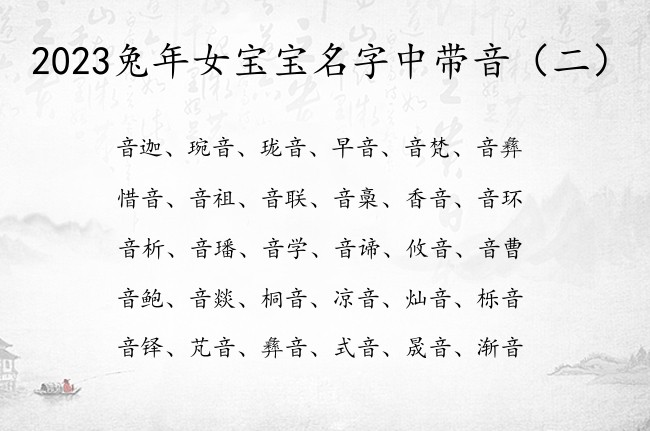 2023兔年女宝宝名字中带音（二）
音迦、琬音、珑音、早音、音梵、音彝
惜音、音祖、音联、音稾、香音、音环
音析、音璠、音学、音谛、攸音、音曹
音鲍、音燚、桐音、凉音、灿音、栎音
音铎、芃音、彝音、式音、晟音、渐音